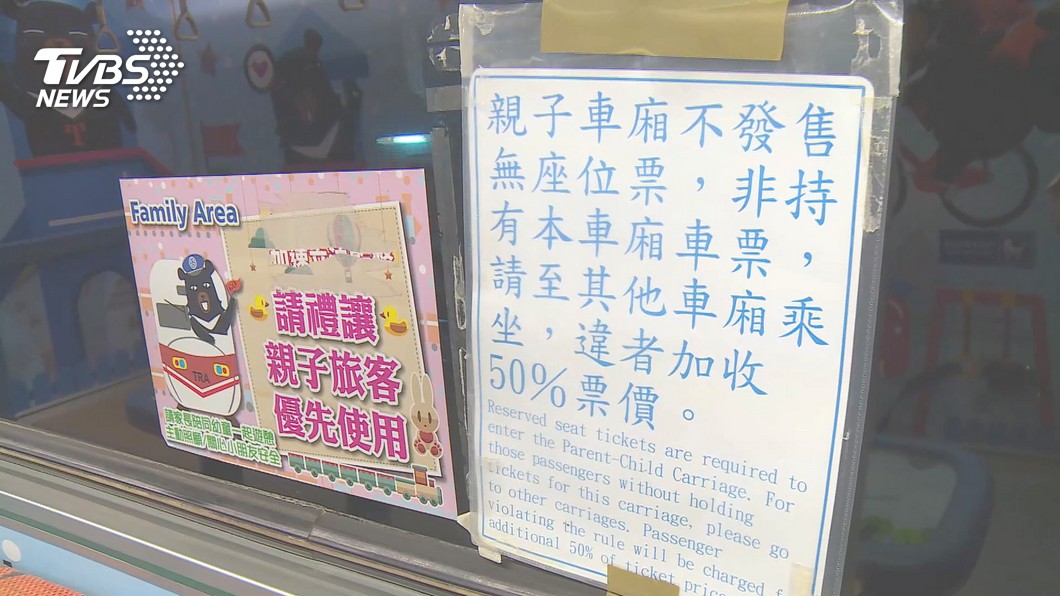 TVBS
NEWS
Family Area
請禮讓
親子旅客
優先使用
TRA
請家長陪同幼童一起遊憩
主動照顧/關心小朋友安全
親子車廂不發售
無座位票，非持
有本車廂車票，
請至其他車廂乘
坐，違者加收
50%票價。
Reserved seat tickets are required to
enter the Parent-Child Carriage. For
those passengers without holding
tickets for this carriage, please go
to other carriages. Passenger
violating the rule will be charged
additional 50% of ticket price